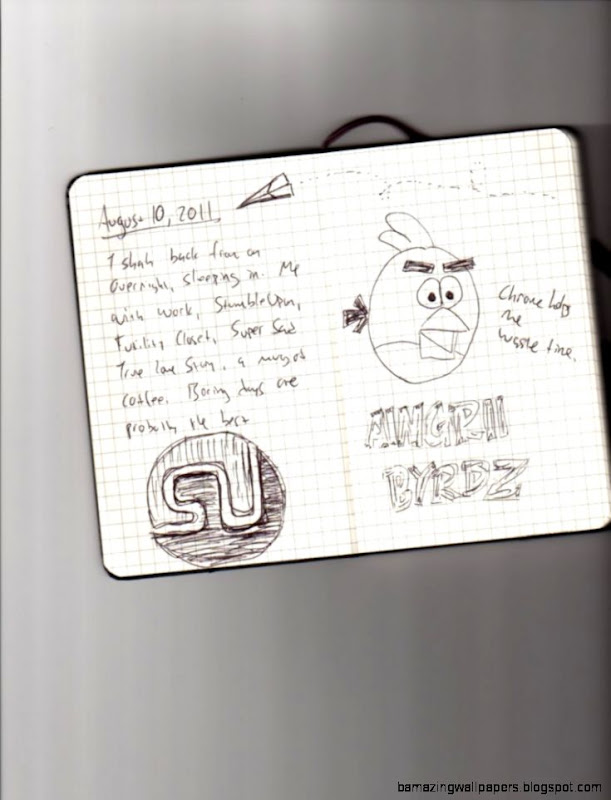 August 10, 2011.
back from an
overnight, sleeping in. Me
with work, StumbleUpon,
Futility Closet, Super Sad
True Love Story, a mug of
coffee. Boring days are
probably the best
SU
Chrome helps
me
waste time.
ANGRII
BYRDZ
bamazingwallpapers.blogspot.com